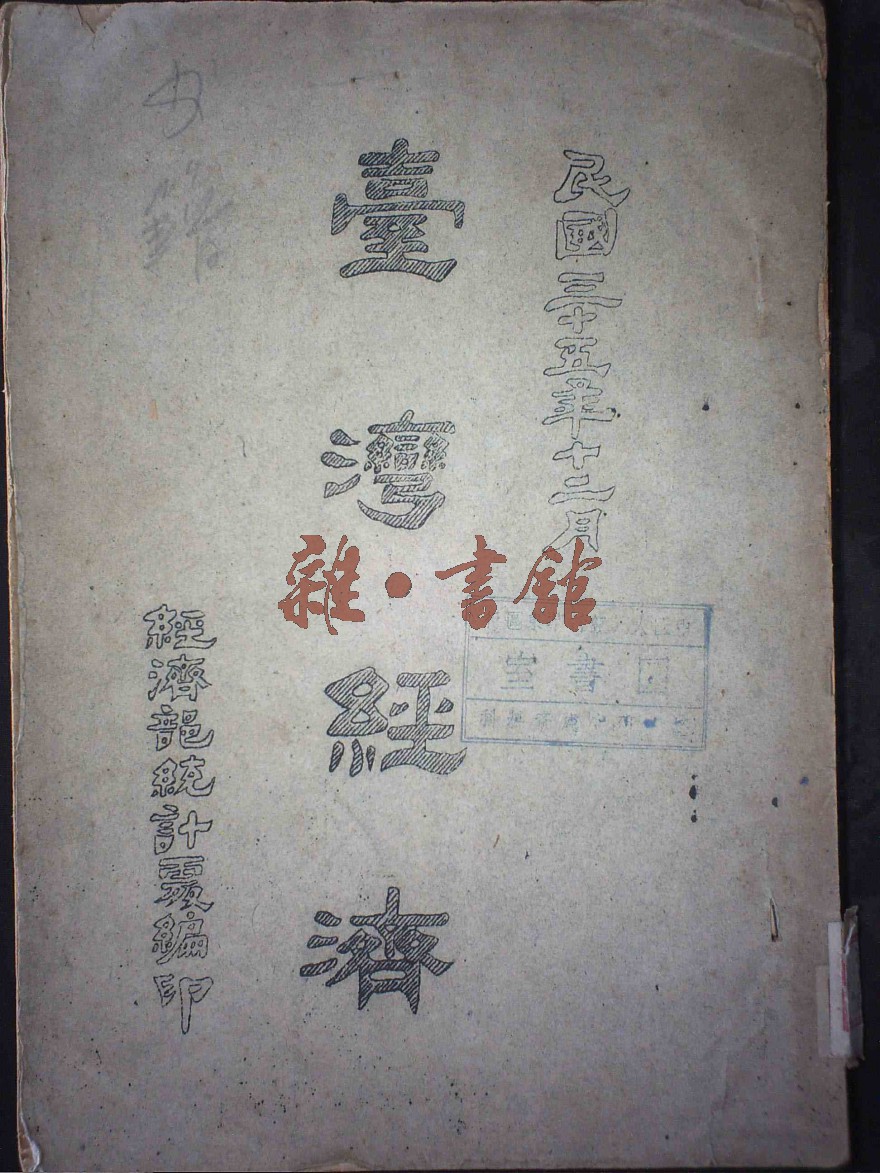 民國三十五年十二月
臺灣經濟
經濟部統計處編印
雜·書館
圖書室